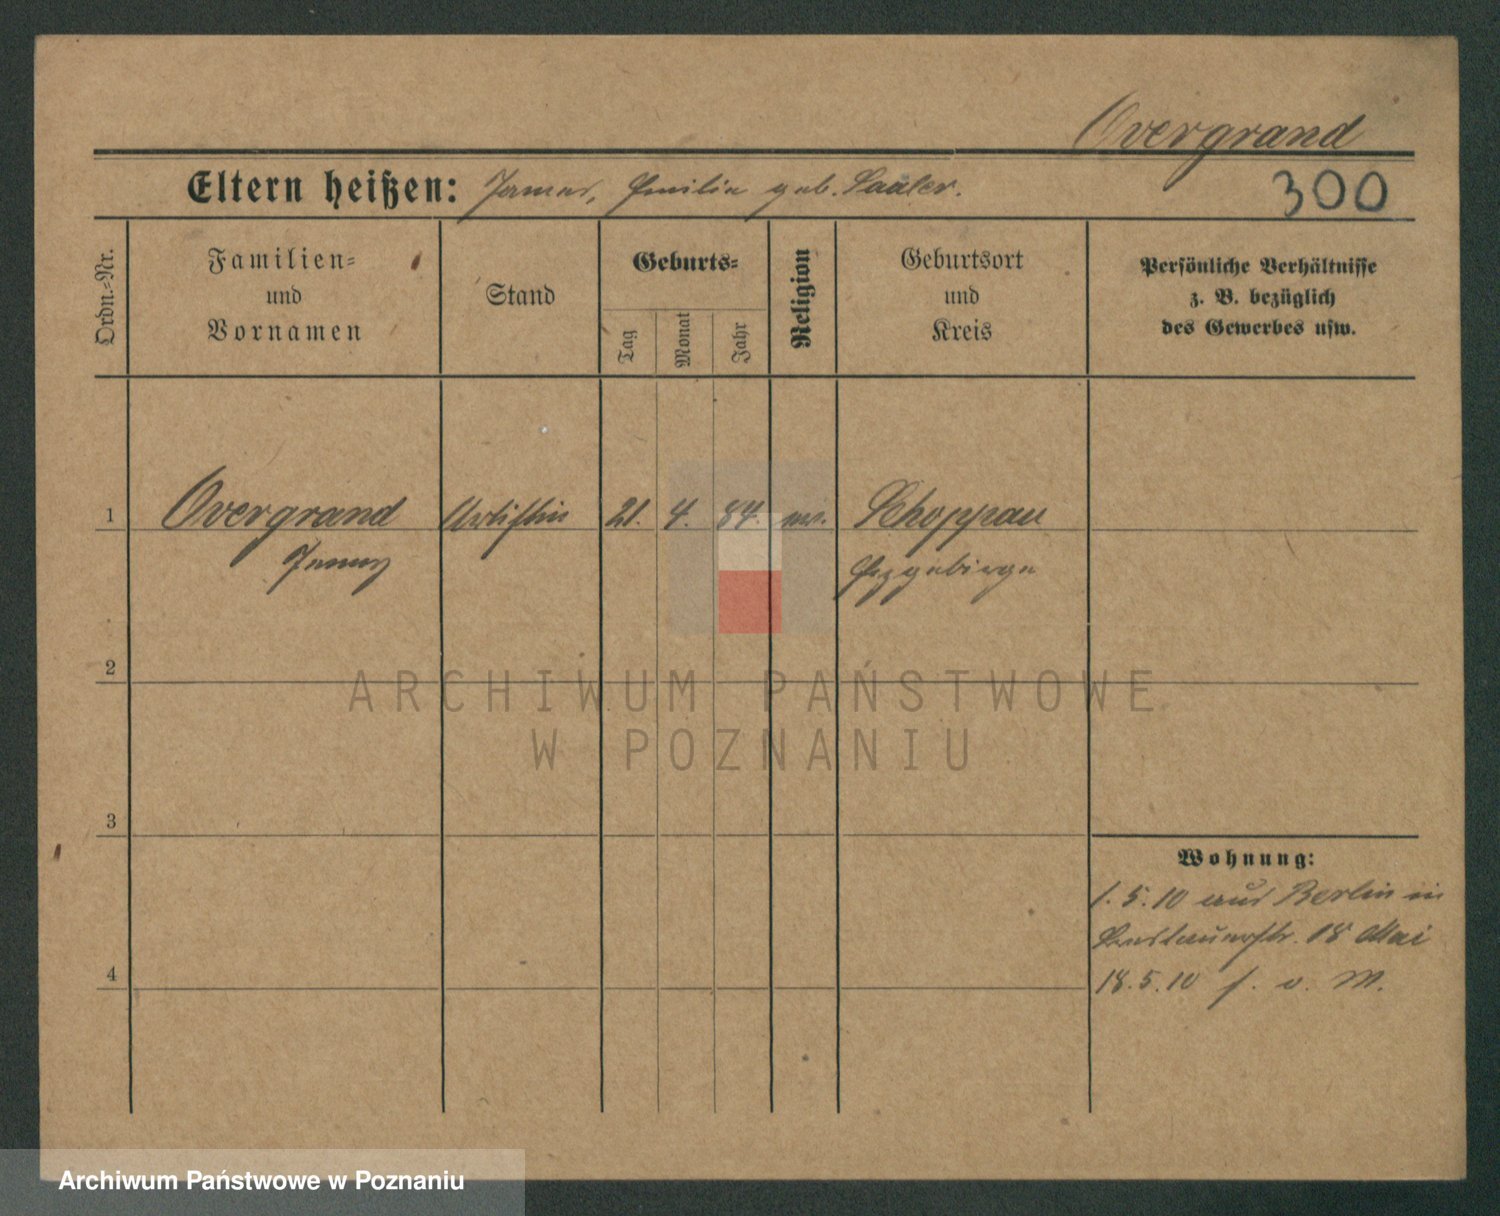 Overgrand
Eltern heißen: Emilie geb. Saaler.
300
Ordn.-Nr.
Familien- und Vornamen
Stand
Geburts-
Tag
Monat
Jahr
Religion
Geburtsort und Kreis
Persönliche Verhältnisse
z. B. bezüglich
des Gewerbes usw.
1 Overgrand Artistin 21. 4. 84. ev. Schoppau
Jenny Erzgebirge
2
ARCHIWUM PAŃSTWOWE
W POZNANIU
3
Wohnung:
1.5.10 aus Berlin in
18 Mai
4
18.5.10 f. v. M.
Archiwum Państwowe w Poznaniu